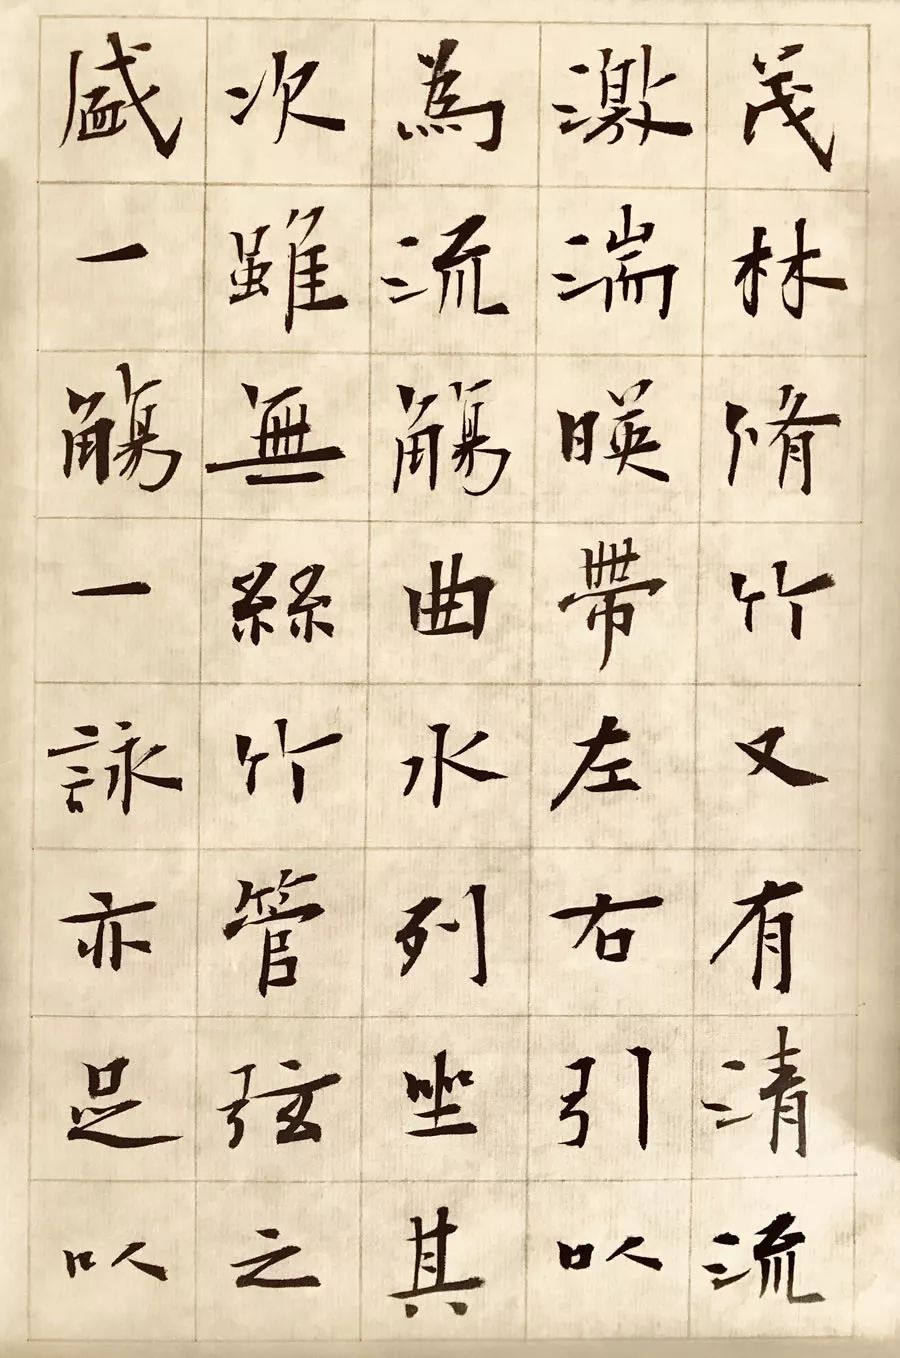 茂林脩竹又有清流
激湍暎帶左右引以
為流觴曲水列坐其
次雖無絲竹管弦之
盛一觴一詠亦足以